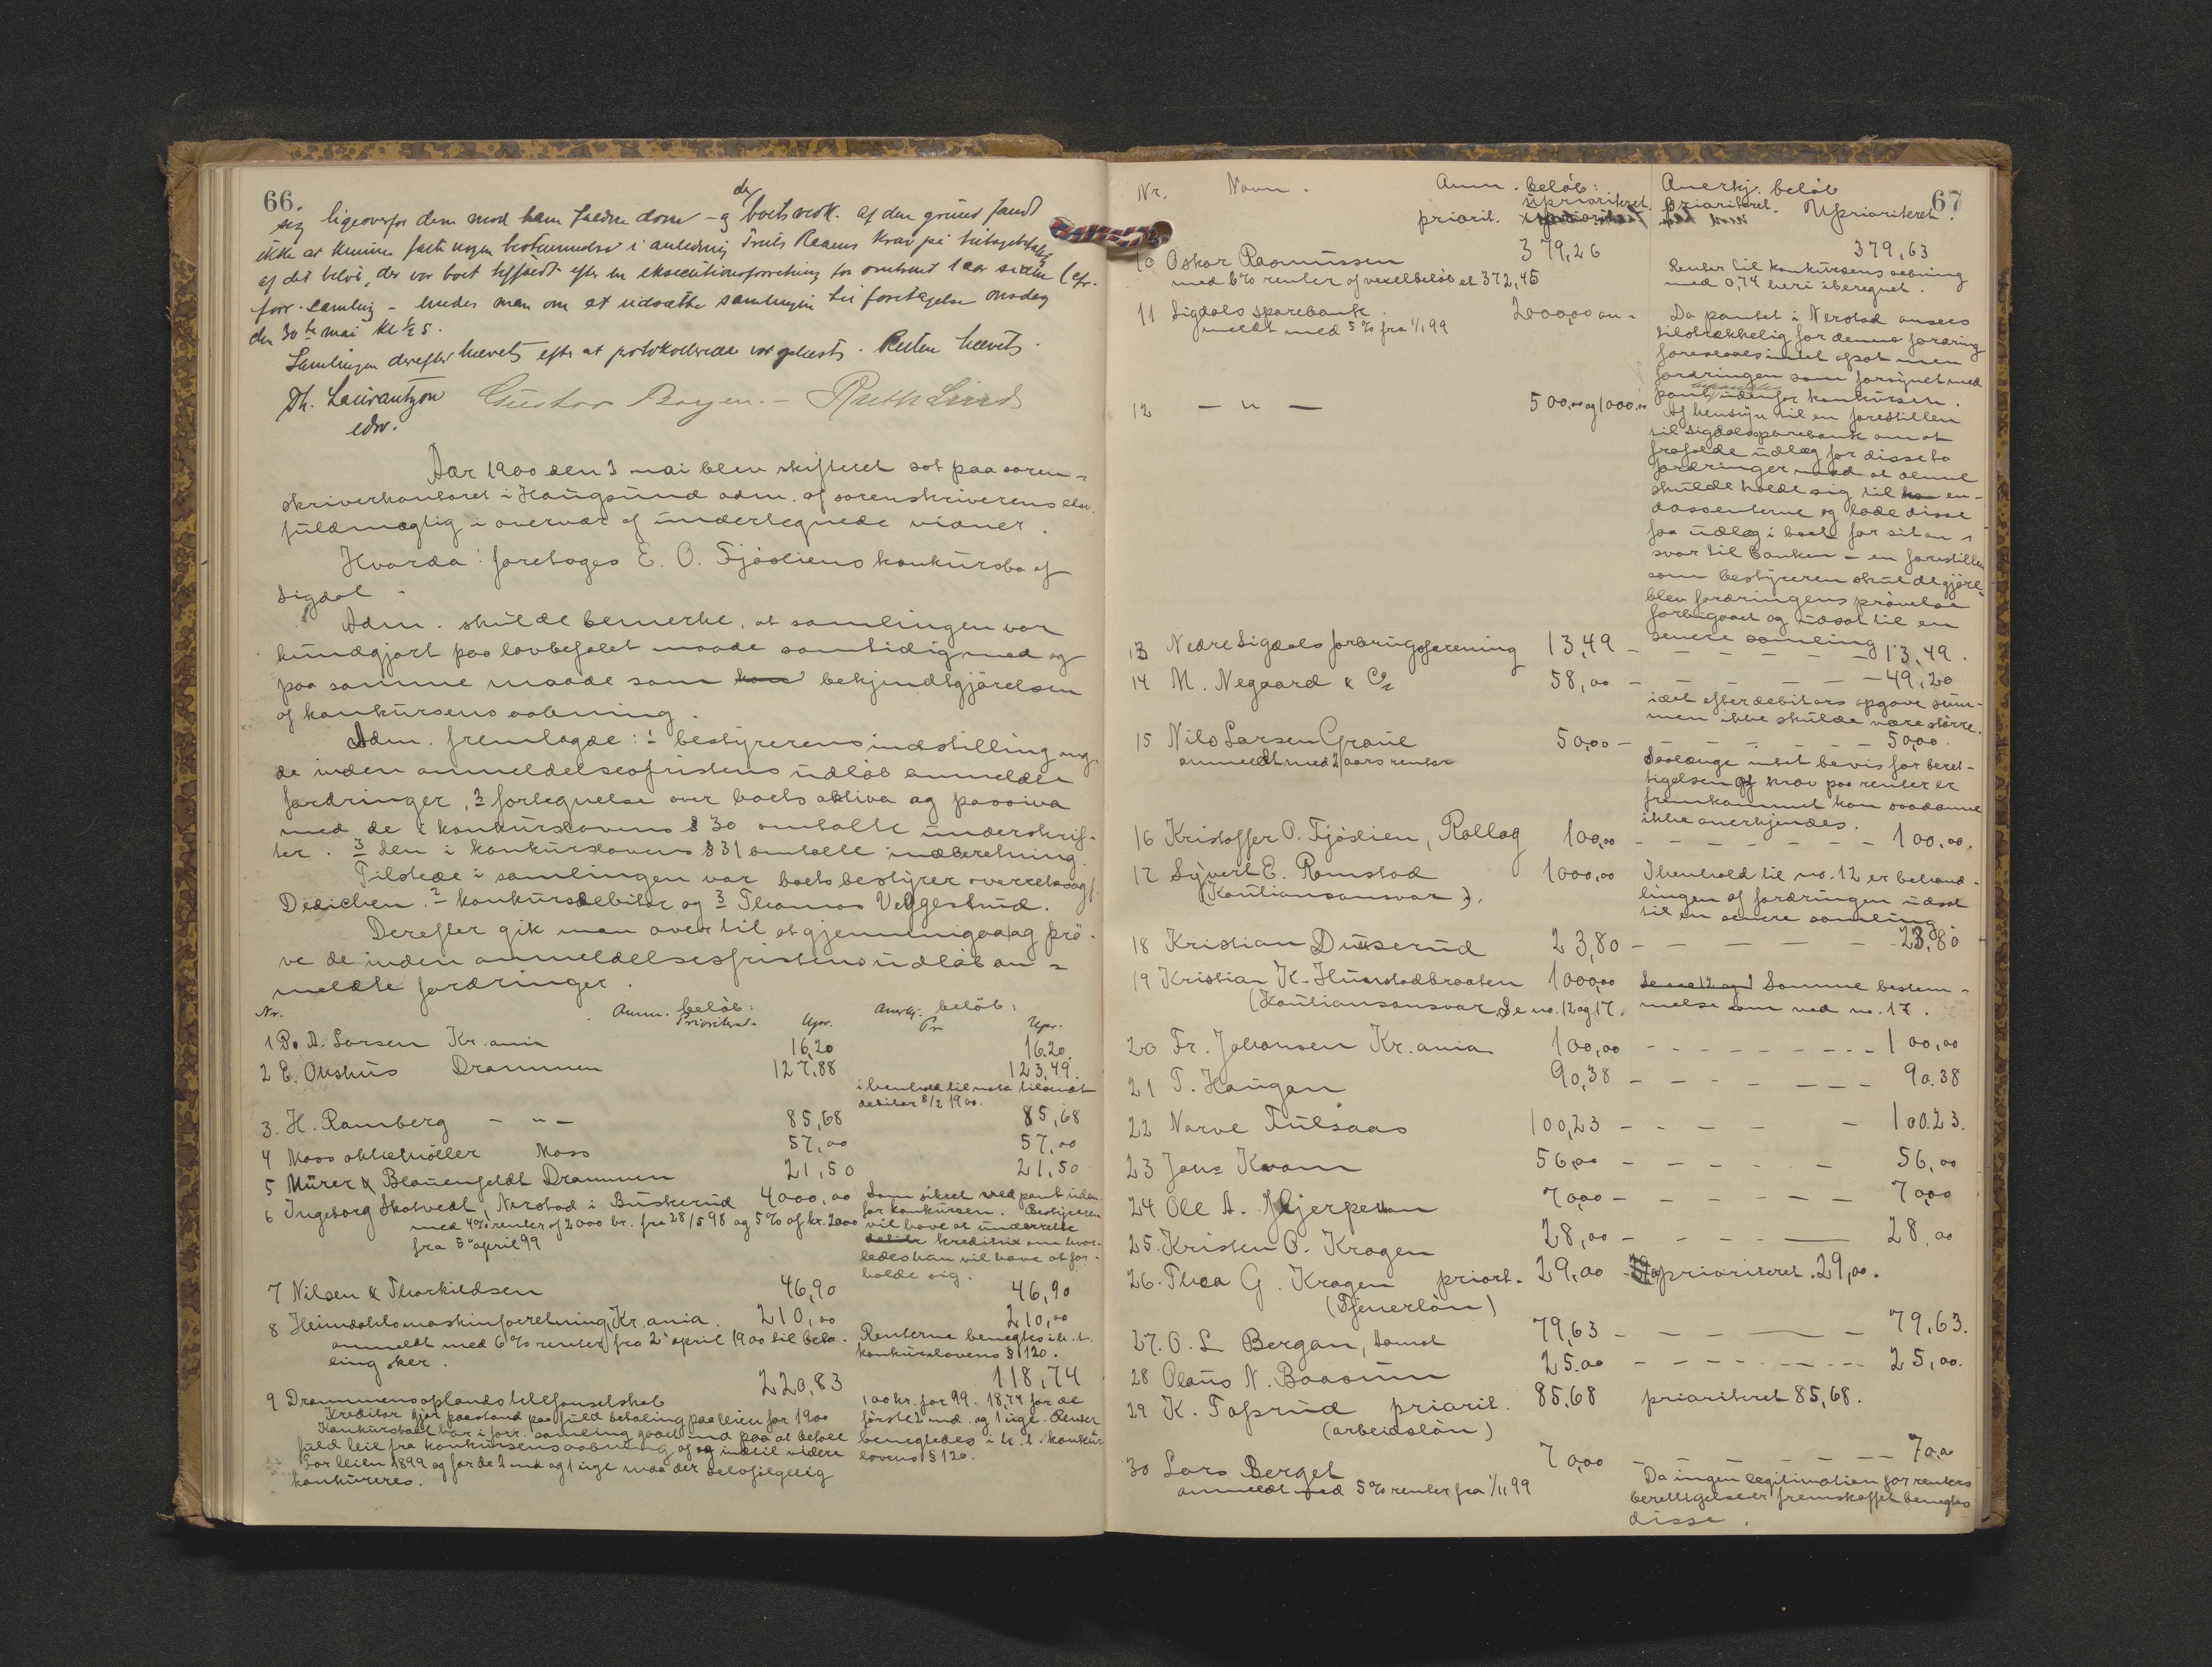 66.
sig ligeoverfor dem mod ham faldne dom – og da boets vedk. af den grund fandt
ikke at kunne fatte nogen bestemmelse i anledning Truls Reaens krav på tilbagebetaling
af det beløb, der var boet tilført efter en eksecutionsforretning for omtrent 1 aar siden (cfr.
forr. samling – enedes man om at udsætte samlingen til foretagelse onsdag
den 30te mai kl ½5.
Samlingen derefter hævet efter at protokollerede var oplæst. Retten hævet.
Th. Laurantzon Gustav Borgen. – Ruth Lund
edsv.
Aar 1900 den 3 mai blev skifteret sat paa soren-
skriverkontoret i Haugsund adm. af sorenskriverens edsv.
fuldmægtig i overvær af undertegnede vidner.
Hvorda: foretoges E. O. Fjösliens konkursbo af
Sigdal.
Adm. skulde bemerke, at samlingen var
kundgjort paa lovbefalet maade samtidig med og
paa samme maade som kon bekjendtgjörelsen
af konkursens aabning.
Adm. fremlagde: 1 bestyrerens indstilling ang.
de inden anmeldelsesfristens udlöb anmeldte
fordringer, 2 fortegnelse over boets aktiva og passiva
med de i konkurslovens § 30 omtalte underskrif-
ter. 3 den i konkurslovens § 31 omtalte indberetning.
Tilstede i samlingen var boets bestyrer overretssagf.
Dedichen, 2 konkursdebitor og 3 Thomas Veggesrud.
Derefter gik man over til at gjennemgaa og prö-
ve de inden anmeldelsesfristens udlöb an-
meldte fordringer.
Nr. Anm. belöb: Anerkj. belöb:
Prioriteret. Upr. Pr. Upr.
1 P. A. Larsen Kr.ania 16,20 16.20.
2 E. Okshus Drammen 127,88 123,49.
i henhold til nota tilsendt
debitor 8/2 1900.
3. H. Ramberg – " – 85,68 85,68
4 Moss aktiemöller Moss 57,00 57,00
5 Mürer & Blauenfeldt Drammen 21,50 21,50
6 Ingeborg Skatvedt, Nerstad i Buskerud 4000,00 Som sikret ved pant uden-
med 4% renter af 2000 kr. fra 28/5 98 og 5% af kr. 2000 for konkursen. Bestyreren
fra 5te april 99 vil have at underrette
debitor kreditrix om hvor-
ledes hun vil have at for-
holde sig.
7 Nilsen & Thorkildsen 46,90 46,90
8 Heimdahls maskinforretning, Kr.ania. 210,00 210,00
anmeldt med 6% renter fra 2den april 1900 til beta- Renterne benegtes i h. t.
ling sker. konkurslovens § 120.
9 Drammens oplands telefonselskab 220,83 118,74
Kreditor gjør paastand paa fuld betaling paa leien for 1900 100 kr. for 99. 18,74 for de
Konkursboet har i forr. samling gaaet ind paa at betale første 2 md. og 1 uge. Renter
fuld leie fra konkursens aabning af og indtil videre benegtedes i h. t. konkurs-
For leien 1899 og for de 2 md og 1 uge maa der selvfølgelig lovens § 120.
konkureres.
67
Nr. Navn. Anm. belöb: Anerkj. belöb
priorit. upriioriteret. prioriteret. Uprioriteret.
10 Oskar Rasmussen 379,26 379,63
med 6% renter af vexelbelöb et 372,45 Renter til konkursens aabning
med 0,74 heri iberegnet.
11 Sigdals sparebank 2000,00 Da pantet i Nerstad ansees
meldt med 5% fra 1/1 99 tilstrækkelig for denne fordring
foresloges intet afsat men
fordringen som forsynet med
pant behandles udenfor konkursen.
12 – " – 500,00 og 1000,00 Af hensyn til en forestillen
til Sigdals sparebank om at
frafalde udlæg for disse to
fordringer mod at denne
skulde holde sig til en-
dossenterne og lade disse
faa udlæg i boet for sit an-
svar til banken – en forestillen
som bestyreren skulde gjöre,
blev fordringens prövelse
forbigaaet og udsat til en
senere samling
13 Nedre Sigdals forbrugsforening 13,49 – – – – – 13,49.
14 M. Negaard & Co 58,00 – – – – – 49,20
idet efter debitors opgave sum-
men ikke skulde være större.
15 Nils Larsen Graue 50,00 – – – – – 50,00.
anmeldt med 2 aars renter Saalænge intet bevis for beret-
tigelsen af krav paa renter er
fremkommet kan saadanne
ikke anerkjendes.
16 Kristoffer O. Fjöslien, Rollag 100,00 – – – – – 100,00.
17 Syvert E. Ramstad 1000,00 I henhold til no. 12 er behand-
(Kautionsansvar). lingen af fordringen udsat
til en senere samling
18 Kristian Duserud 23,80 – – – – – 23,80
19 Kristian K. Hunstadbraaten 1000,00 Samme bestem-
(Kautionsansvar, Se no. 12 og 17. melse som ved no. 17.
20 Fr. Johansen Kr.ania 100,00 – – – – – 100,00
21 T. Haugan 90,38 – – – – – 90.38
22 Narve Tulsaas 100,23 – – – – 100.23.
23 Jons Kvam 56,00 – – – – – 56,00
24 Ole A. Hjerpetan 70,00 – – – – – 70,00
25. Kristen O. Kragen 28,00 – – – – 28,00
26. Thea G. Kragen priort. 29,00 – prioriteret. 29,00.
(Tjenerlön)
27. O. L Bergan, 79,63 – – – – 79,63.
28 Olaus N. Baasum 25.00 – – – – – 25,00.
29 K. Tofsrud priorit. 85,68 prioriteret 85,68.
(arbeidslön)
30 Lars Berget 70,00 – – – – – 70,00
anmeldt med 5% renter fra 1/11 99 Da ingen legitimation for renters
berettigelse er fremskaffet benegtes
disse.